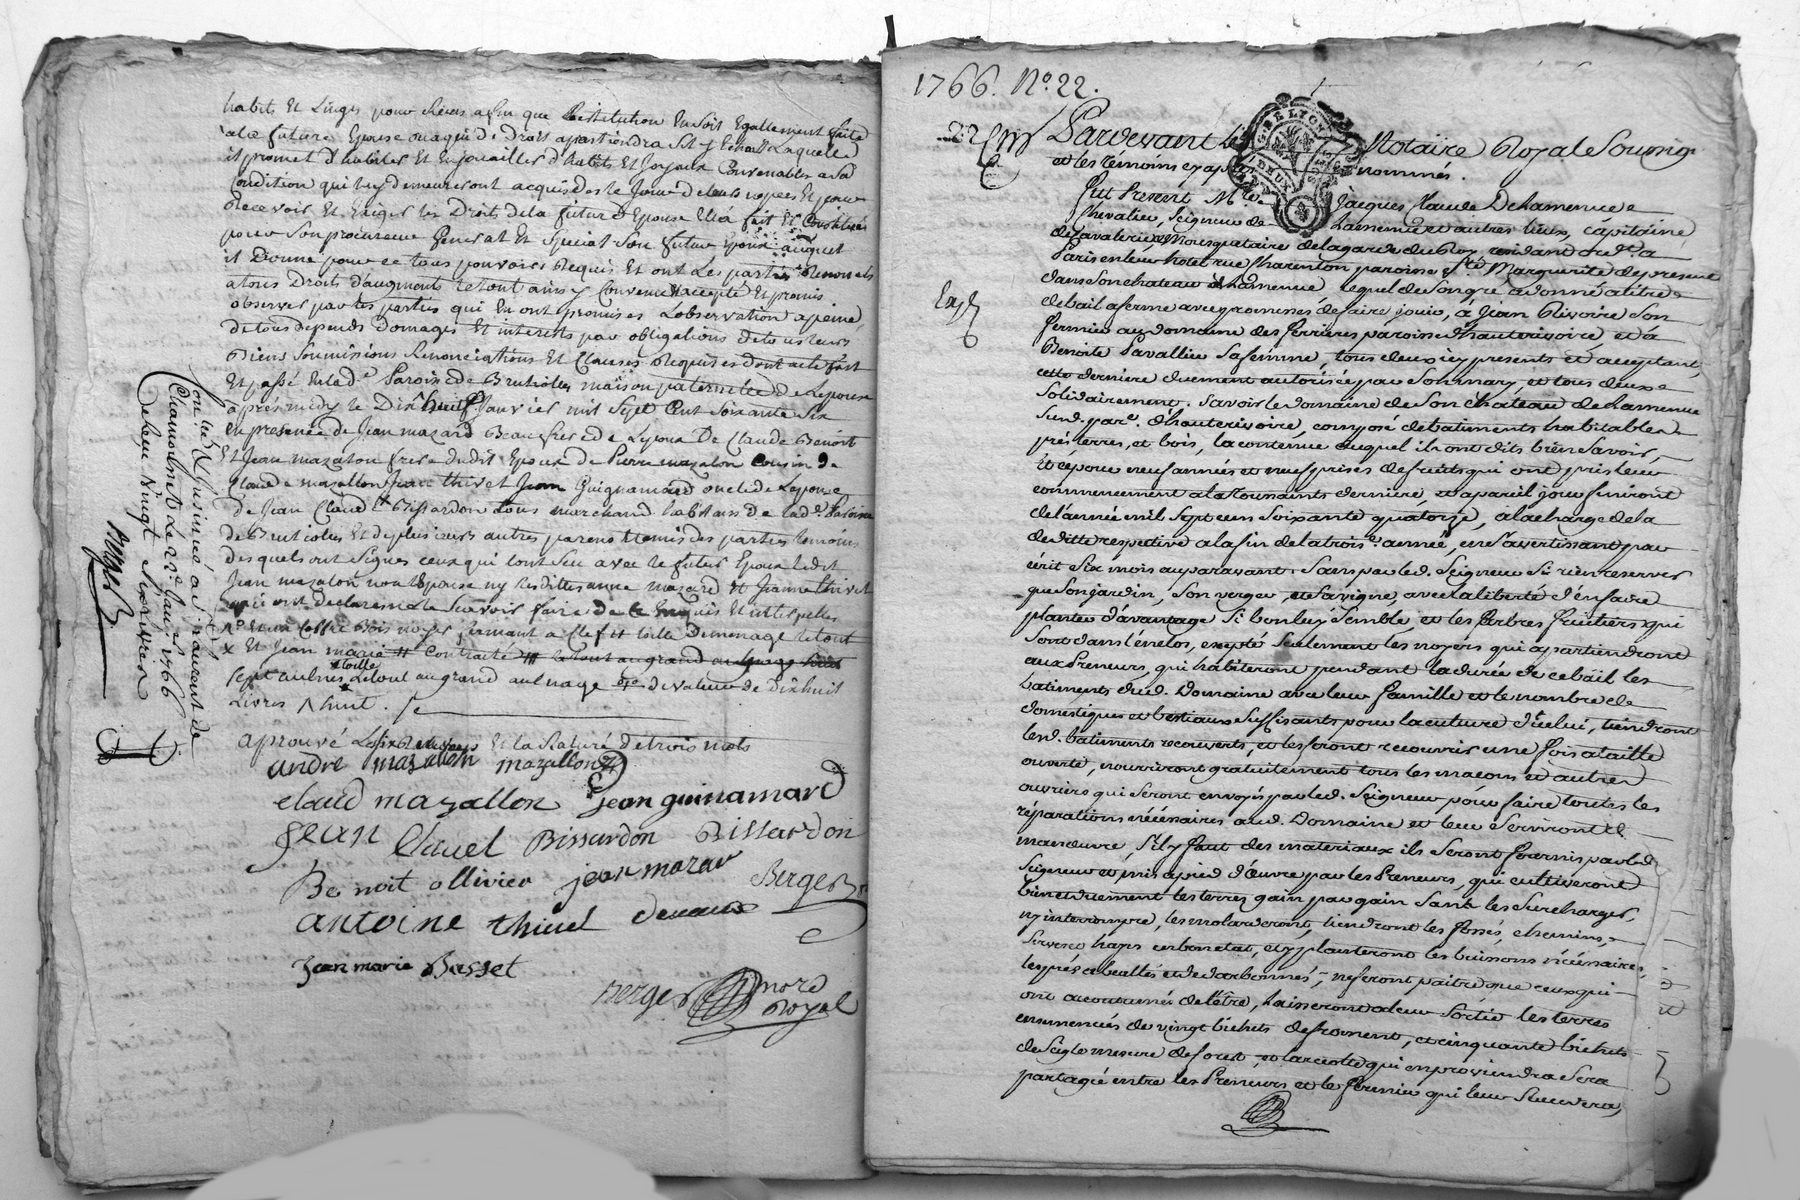 habits et Linges pour Iceux afin que Restitution En soit Egallement faite
a lad future Epouse ou a qui de droit appartiendra
il promet d'habiller Et Enjouailler d'habits Et Joyaux Convenables a sa
Condition qui luy demeureront acquis des le Jour de leurs nopces Et pour
Recevoir Et Exiger les Droits de la future Epouse Elle a fait Et Constitué
pour son procureur General Et special son futur Epoux auquel
il Donne pour ce tous pouvoirs Requis Et ont Les parties Renoncés
a tous Droits d'augments le tout ainsy Convenu accepté Et promis
observer par les parties qui En ont promis es L'observation a peine
de tous depends Domages Et interests par obligations de tous leurs
Biens soumissions Renonciations Et Clauses Requises dont acte fait
Et passé En lad.e Paroisse de Brutiolles maison paternelle de Lepouse
après midy le Dix huit Janvier mil sept Cent soixante six
En presence de Jean mazard Beaufrere de Lepoux De Claude Benoit
Et Jean mazallon frere dudit Epoux de Pierre mazallon Cousin de
Claude mazallon Jean thivel Jean Guignamard oncle de Lepouse
de Jean Claud Bissardon tous marchand habitans de lad.e Paroisse
de Brutiolles Et de plusieurs autres parens Et amis des parties temoins
desquels ont Signés ceux qui L'ont sçu avec le futur Epoux Ledit
Jean mazalon non L'Epouse ny Lesdittes anne mazard Et Jeanne thivel
qui ont declaré ne le sçavoir faire de ce Enquis Et interpelles
Et un Coffre bois noyer fermant a Clef Et toille De menage le tout
x Et Jean marie # Contracté # le tout au grand
toille
sept aulnes Le tout au grand aulnage de valeur de Dixhuit
Livres huit.
aprouvé et la Rature de trois mots
andre mazallon mazallon
claud mazallon jean guinamard
Jean Clauel Bissardon Bissardon
Benoit ollivier jean mazar Berger
antoine thiuel deuaux
Jean marie Basset
Berger Nore Royal
Con.lé et Insinué a St Laurent de
Chamousset Le 22e Janv. 1766
Reçu Vingt
Berger
1766. No. 22.
22 Janv
Pardevant le Notaire Royal Soussig.
et les temoins cy apres nommés.
Fut Present M.re Jacques Claude Dehamenue
Chevalier, Seigneur de hamenue et autres lieux, capitaine
de Cavalerie Mousquetaire de la garde du Roy, residant ord.t a
Paris en leur hotel rue Charenton paroisse S.te Marguerite de present
dans Son chateau de hamenue Lequel de Son gré a donné a titre
de bail a ferme avec promesse de faire jouir, à Jean Olivoire Son
Exp
fermier au domaine des ferrieres paroisse d'hauterivoire, et à
Benoite Lavallier Sa femme, tous deux icy presents et acceptant,
cette derniere duement autorisée par Son mary, et tous deux
Solidairement. Savoir le domaine de Son chateau de hamenue
Susd. par.e d'hauterivoire, composé de batiments habitables
prés terres, et bois, la contenue duquel ils ont dits bien Savoir,
Et ce pour neuf années et neuf prises de fruits qui ont pris leur
commencement a la toussaints derniere, et a pareil jour finiront
de l'année mil Sept cens Soixante quatorze, a la charge de la
deditte respective a la fin de la trois.e année, en S'avertissant par
écrit Six mois auparavant. Sans par led. Seigneur Se rien reserver
que Son jardin, Son verger, et Sa vigne, avec la liberté d'en faire
planter d'avantage Si bon luy Semble, et les Arbres fruitiers qui
Sont dans l'enclos, excepté Seulement les noyers qui apartiendront
aux Preneurs, qui habiteront pendant la durée de ce bail les
batiments dud. Domaine avec leur famille et le nombre de
domestiques et bestiaux Suffisants pour la culture d'icelui, tiendront
lesd. batiments recouverts, et les feront recouvrir une fois a taille
ouverte, nourriront gratuitement tous les maçons et autres
ouvriers qui Seront envoyés par led. Seigneur pour faire toutes les
réparations nécéssaires aud. Domaine et leur Serviront de
manœuvre, S'il y faut des materiaux ils Seront fournis par led.
Seigneur et mis a pied d'œuvre par les Preneurs, qui cultiveront
bien et duement les terres gain par gain Sans les Surcharger,
ny interrompre, les molarderont, tiendront les fossés, chemins,
Serves et hayes en bon etat, et y planteront les buissons nécéssaires,
les prés et darbonnés, ne feront paître que ceux qui
ont accoutumés de l'être, laisseront a leur Sortie les terres
ensemencées de vingt bichets de froment, et cinquante bichets
de Seigle mesure de forest et la recolte qui en proviendra Sera
partagée entre les Preneurs et le fermier qui leur Succedera,